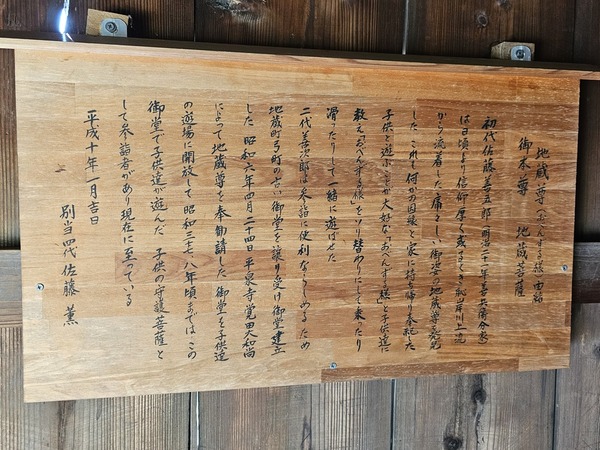 地蔵尊(おべんする様)由緒
御本尊 地蔵菩薩
初代佐藤善五郎(明治二十一年善兵衛分家)
は日頃より信仰厚く或るとき 川上流
から流着した痛々しい御姿の地蔵尊を発見
した これも何かの因縁と家に持ち帰り奉祀した
子供と遊ぶことが大好な"おべんする様"と子供達に
教え"おべんする様"をソリ替わりにして乗ったり
滑ったりして一緒に遊ばせた
二代善次郎は参詣に便利ならしめるため
地蔵町弓町の古い御堂を譲り受け御堂建立
した 昭和六年四月二十四日平泉寺覚田大和尚
によって地蔵尊を奉勧請した 御堂を子供達
の遊場に開放して昭和三七、八年頃までは この
御堂で子供達が遊んだ 子供の守護菩薩と
して参詣者があり現在に至っている
平成十年一月吉日
別当四代 佐藤 薫